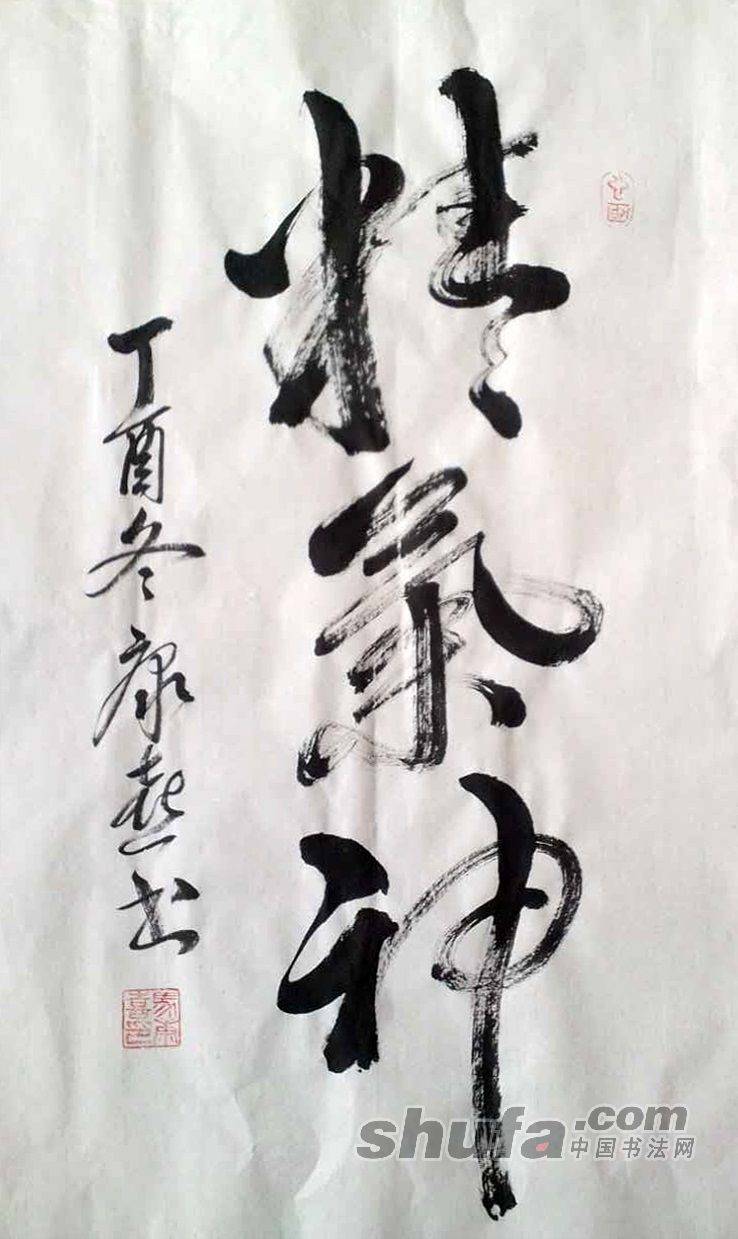 精氣神
丁酉冬康喜书
shufa.com
中国书法网